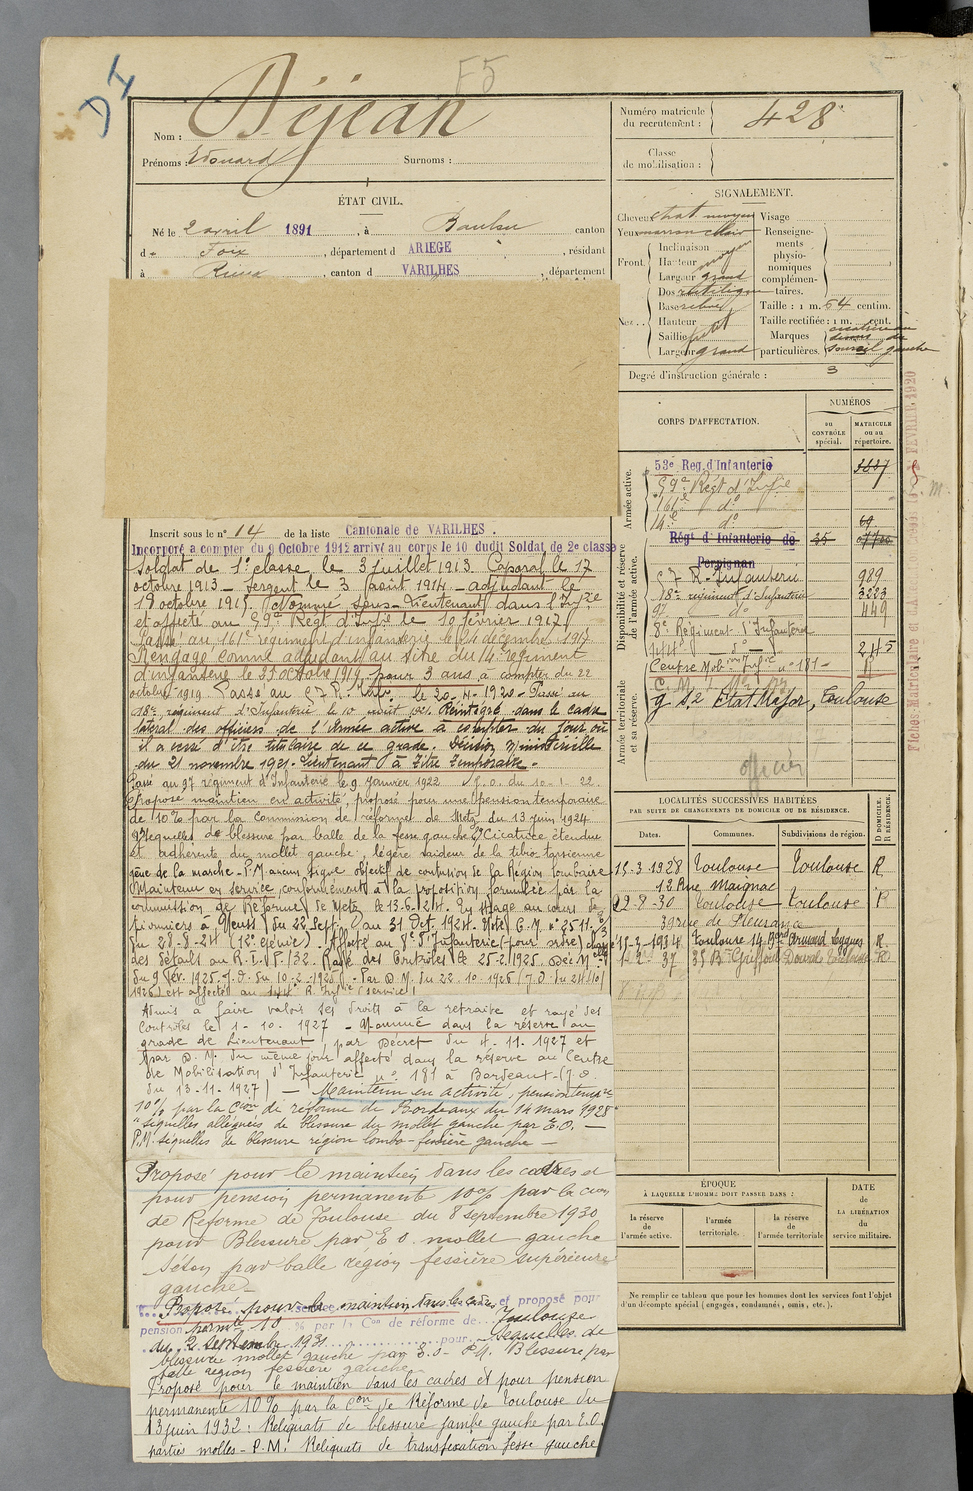 F5
Nom : Déjean
Prénoms : Edouard Surnoms :
Numéro matricule du recrutement : 428
Classe de mobilisation :
ÉTAT CIVIL.
Né le 2 avril 1891, à Baulou canton
d Foix, département d ARIEGE, résidant
à Rieux, canton d VARILHES, département
SIGNALEMENT.
Cheveux chat moyen Visage
Yeux marron clair
Front. Inclinaison
Hauteur moyen
Largeur grand
Nez. Dos rectiligne
Base
Hauteur
Saillie petit
Largeur grand
Renseignements physionomiques complémentaires.
Taille : 1 m. 64 centim.
Taille rectifiée : 1 m. cent.
Marques particulières. cicatrice au dessus du sourcil gauche
Degré d'instruction générale : 3
Inscrit sous le n° 14 de la liste Cantonale de VARILHES.
Incorporé a compter du 9 Octobre 1912 arrivé au corps le 10 dudit Soldat de 2e classe
Soldat de 1e classe le 3 juillet 1913. Caporal le 17
octobre 1913 _ Sergent le 3 août 1914 _ adjudant le
18 octobre 1915. Nommé sous-lieutenant dans l'Inf.ie
et affecté au 59e Régt d'Inf.ie le 10 février 1917
Passé au 161e régiment d'infanterie le 24 décembre 1917
Rengagé comme adjudant au titre du 14e régiment
d'infanterie le 25 octobre 1919 pour 3 ans à compter du 22
octobre 1919. Passé au 57 R. Inf. le 30-4-1920 - Passé au
18e régiment d'Infanterie le 10 août 1921. Réintégré dans le cadre
latéral des officiers de l'Armée active à compter du jour où
il a cessé d'être titulaire de ce grade. Décision Ministérielle
du 21 novembre 1921. Lieutenant à titre temporaire.
Passé au 97 régiment d'Infanterie le 9 Janvier 1922 J.O. du 10-1-22.
Proposé maintien en activité, proposé pour une pension temporaire
de 10% par la Commission de réforme de Metz du 13 juin 1924
Séquelles de blessure par balle de la fesse gauche Cicatrice étendue
et adhérente du mollet gauche, légère raideur de la tibio tarsienne
gêne de la marche - P.M. aucun signe objectif de contusion de la Région lombaire
Maintenu en service conformément à la proposition formulée par la
commission de Réforme de Metz le 13-6-24. En stage au cours de
pionniers à Neuss du 22 Sept. au 31 Oct. 1924. Note C.M. n° 2511
du 28-8-24 (12e Génie). Affecté au 8e d'Infanterie (pour ordre)
des détails au R.I. P./32. Rayé des Contrôles le 25-2-1925. Déc M.
du 9 fév. 1925. J.O. du 10-2-1925. Par D.M. du 22-10-1926 (J.O du 24/10/
1926) est affecté au 144e R. Inf.ie (service)
Admis à faire valoir ses droits à la retraite et rayé des
Contrôles le 1-10-1927 - Nommé dans la réserve au
grade de Lieutenant, par Décret du 4-11-1927 et
par D.M. du même jour affecté dans la réserve au Centre
de Mobilisation d'Infanterie n° 181 à Bordeaux (J.O
du 13-11-1927) - Maintenu en activité, pension temp.re
10% par la C.ion de réforme de Bordeaux du 14 mars 1928
"séquelles alléguées de blessure du mollet gauche par E.O. -
P.M. séquelles de blessure région lombo-fessière gauche -
Proposé pour le maintien dans les cadres et
pour pension permanente 10% par la C.ion
de Réforme de Toulouse du 8 septembre 1930
pour Blessure par E O mollet gauche
Séton par balle région fessière supérieure
gauche -
Proposé pour le maintien dans les cadres et proposé pour
pension perm.te 10 % par la C.on de réforme de Toulouse
du 2 septembre 1931 pour séquelles de
blessure mollet gauche par E.O - P.M. Blessure par
balle région fessière gauche
Proposé pour le maintien dans les cadres et pour pension
permanente 10% par la C.on de Réforme de Toulouse du
13 juin 1932 : Reliquats de blessure jambe gauche par E.O.
parties molles - P.M. Reliquats de transfixation fesse gauche
CORPS D'AFFECTATION.
NUMÉROS
au CONTRÔLE spécial.
MATRICULE ou au répertoire.
Armée active.
53e Reg. d'Infanterie
59e Régt d'Inf.ie
161e d°
14e d° 69
Disponibilité et réserve de l'armée active.
Régt d'Infanterie de Perpignan 35
57 R. Infanterie 989
18e régiment d'Infanterie 3223
97 d° 449
8e Régiment d'Infanterie
144e d° 245
Centre Mob.ion Inf.ie n° 181
Armée territoriale et sa réserve.
Etat Major, Toulouse
officier
Fiches Matriculaire FÉVRIER 1920
LOCALITÉS SUCCESSIVES HABITÉES
PAR SUITE DE CHANGEMENTS DE DOMICILE OU DE RÉSIDENCE.
Dates. Communes. Subdivisions de région. D DOMICILE. R RÉSIDENCE.
15-3-1928 Toulouse Toulouse R
12 Rue Maignac
22-8-30 Toulouse Toulouse R
39 rue de Pleurance
15-3-1934 Toulouse R.
1-2-37
ÉPOQUE
À LAQUELLE L'HOMME DOIT PASSER DANS :
la réserve de l'armée active.
l'armée territoriale.
la réserve de l'armée territoriale
DATE de LA LIBÉRATION du service militaire.
Ne remplir ce tableau que pour les hommes dont les services font l'objet
d'un décompte spécial (engagés, condamnés, omis, etc.).